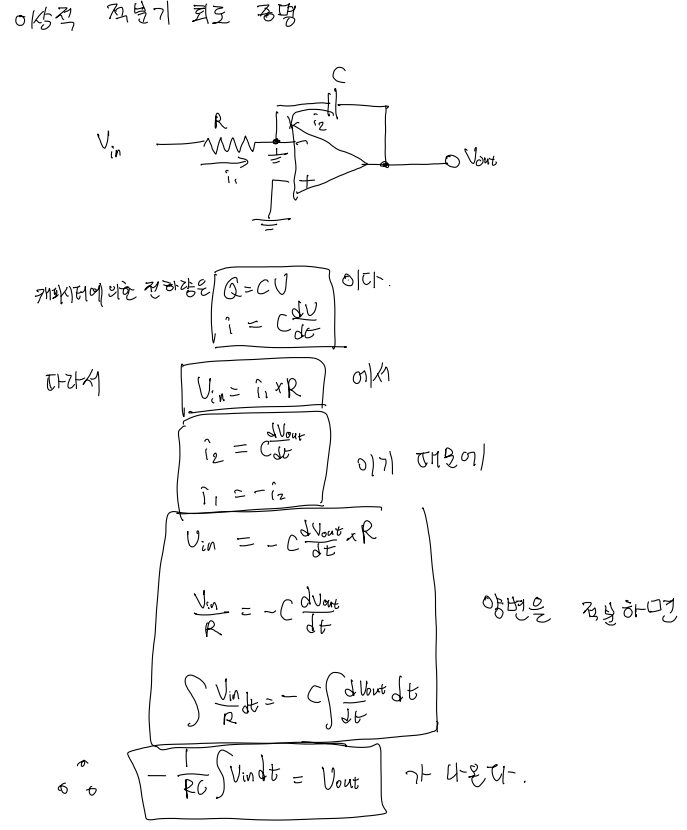 이상적 적분기 회로 증명
C
R
i₂
V_in
i₁
−
+
V_out
캐패시터에 의한 전하량은 Q = CV 이다.
i = C dV/dt
따라서 V_in = i₁ × R 에서
i₂ = C dV_out/dt
이기 때문에
i₁ = -i₂
V_in = -C dV_out/dt × R
V_in/R = -C dV_out/dt
양변을 적분하면
∫ V_in/R dt = -C ∫ dV_out/dt dt
∴ -1/RC ∫ V_in dt = V_out 가 나온다.